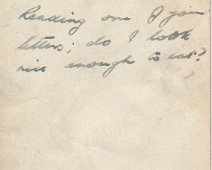 Reading one of your
letters; do I look
nice enough to eat?